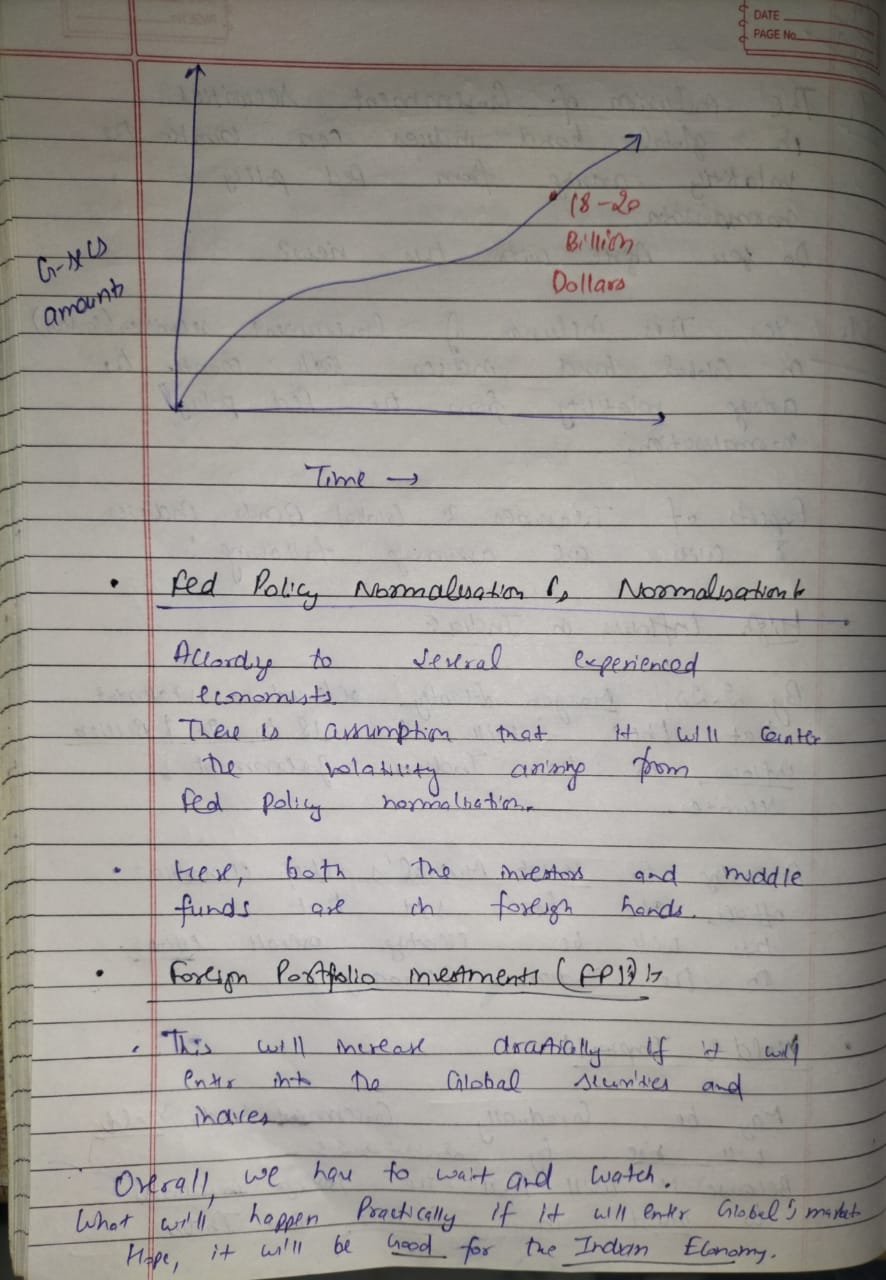 DATE
PAGE No.
G-secs
amount
18-20
Billion
Dollars
Time →
• Fed Policy Normalisation & Normalisation :-
Accordig to several experienced
economists.
There is assumption that it will counter
the volatility arising from
Fed policy normalisation.
• Here, both the investors and middle
funds are in foreign hands.
• Foreign Portfolio investments (FPI) :-
• This will increase drastically if it will
enter into the Global securities and
indices
Overall, we have to wait and watch.
What will happen Practically if it will enter Global's market
Hope, it will be Good for the Indian Economy.